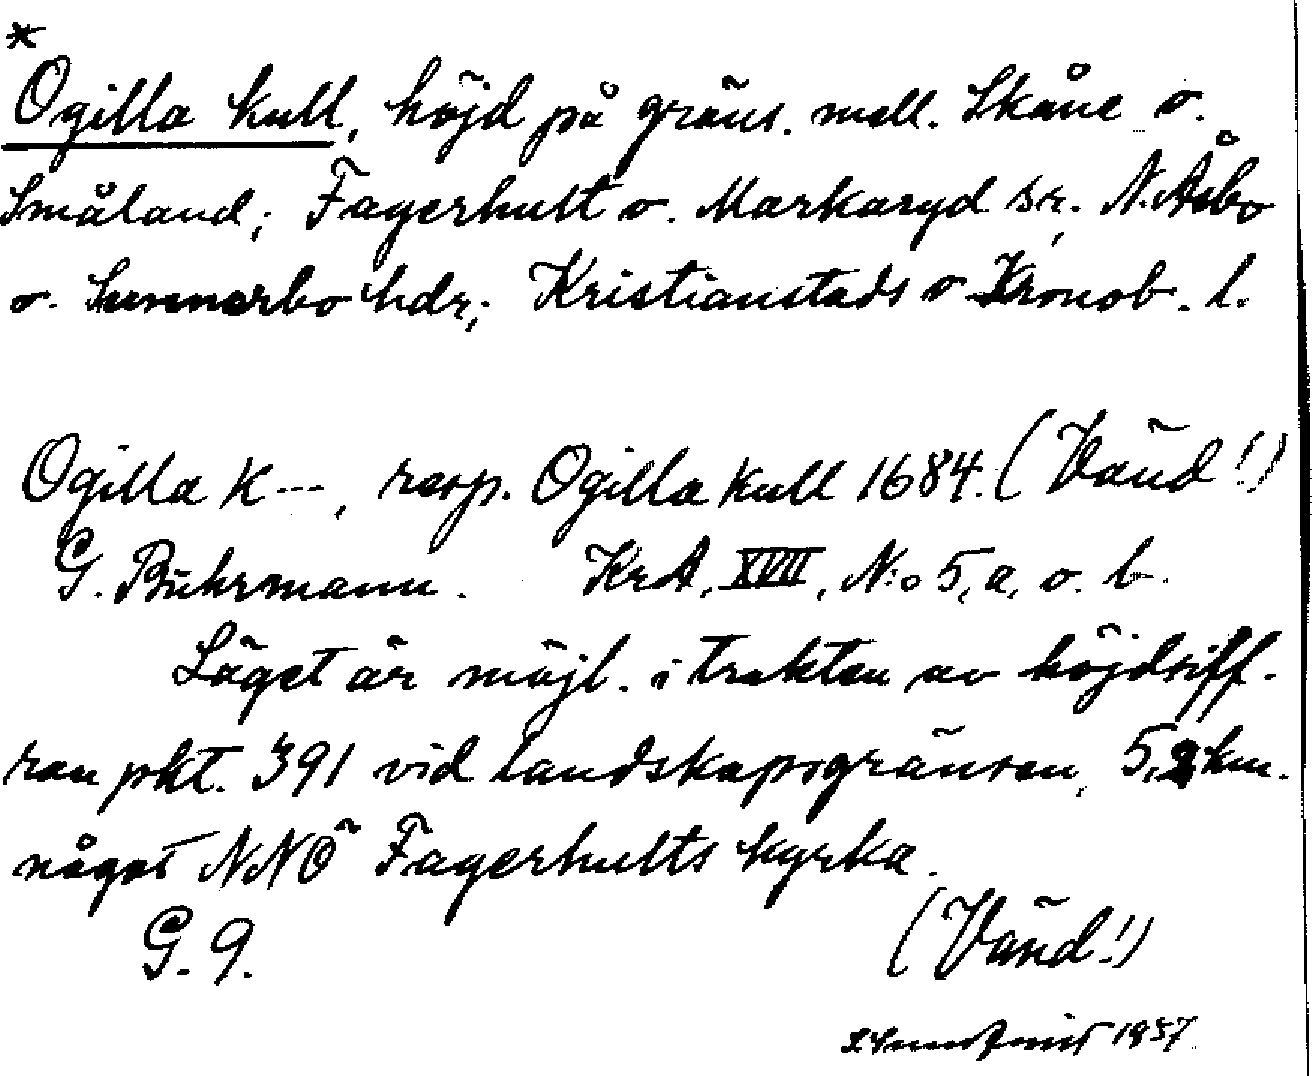 *
Ogilla kull, höjd på gräns. mell. Skåne o.
Småland; Fagerhult o. Markaryd sr, N. Åsbo
o. Sunnerbo hdr; Kristianstads o Kronob. l.
Ogilla K---, resp. Ogilla kull 1684. (Vänd!)
G. Buhrmann. KrA, XVII, N:o 5, a, o. b.
Läget är möjl. i trakten av höjdsiff-
ran pkt. 391 vid landskapsgränsen, 5,2 km.
något NNÖ Fagerhults kyrka.
G. 9. (Vänd!)
1937